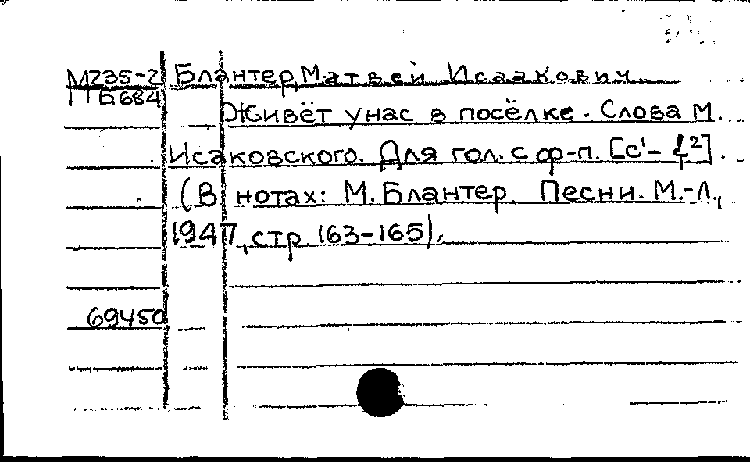 М235-2 Блантер, Матвей Исаакович.
П Б684
Живёт у нас в посёлке. Слова М.
Исаковского. Для гол. с ф-п. [c¹-f²].
(В нотах: М. Блантер. Песни. М.-Л.,
1947, стр. 163-165).
69450